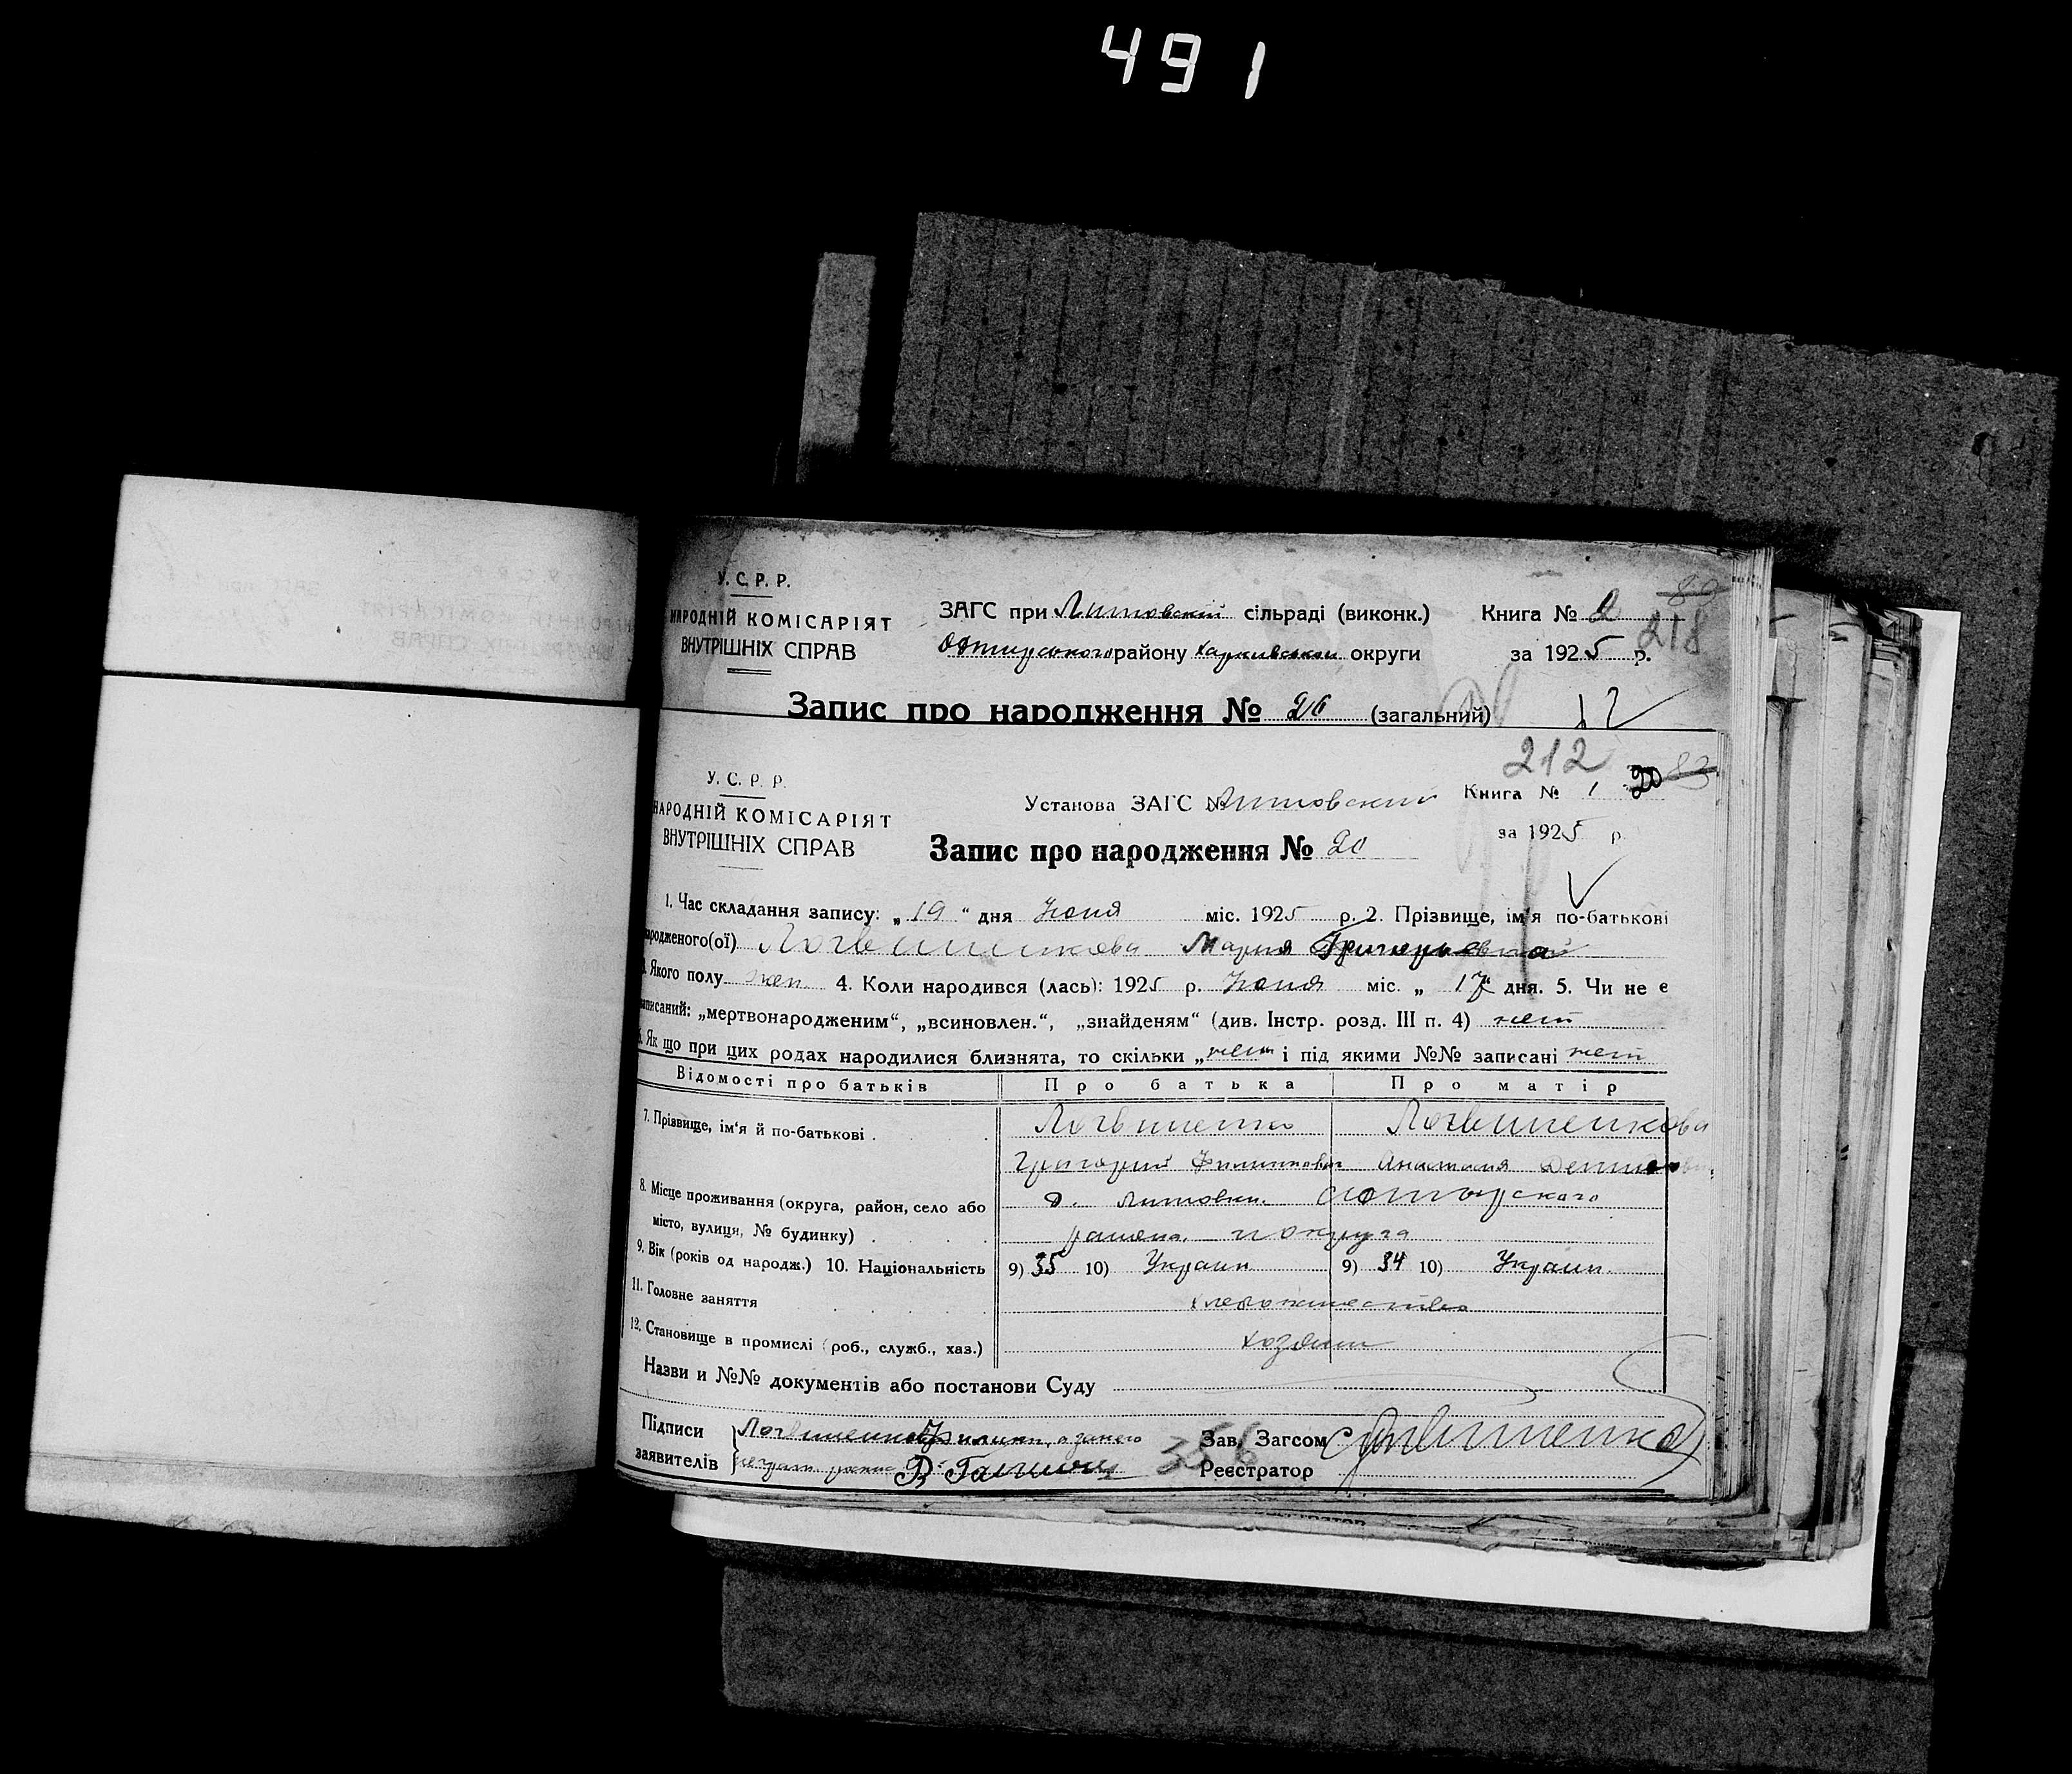 491
У.С.Р.Р.
НАРОДНІЙ КОМІСАРІЯТ
ВНУТРІШНІХ СПРАВ
ЗАГС при Литовскій сільраді (виконк.)
району Харкивськои округи
Книга № 2
80
218
за 1925 р.
Запис про народження № 26 (загальний)
12
212
У.С.Р.Р.
НАРОДНІЙ КОМІСАРІЯТ
ВНУТРІШНІХ СПРАВ
Установа ЗАГС Литовский
Книга № 1 20 83
за 1925 р
Запис про народження № 20
1. Час складання запису: „19“ дня Июня міс. 1925 р. 2. Прізвище, ім'я по-батькові
народженого(ої) Мария Григорьевна
Якого полу жен. 4. Коли народився (лась): 1925 р. Июня міс. „17“ дня. 5. Чи не є
записаний: „мертвонародженим“, „всиновлен.“, „знайденям“ (див. Інстр. розд. III п. 4) нет
6. Як що при цих родах народилися близнята, то скільки „нет“ і під якими №№ записані нет
Відомості про батьків Про батька Про матір
7. Прізвище, ім'я й по-батькові . . Логвиненко Логвиненкова
Григорий Филипович Анастасия
8. Місце проживання (округа, район, село або
місто, вулиця, № будинку) . . .
с. Литовки
района округа
9. Вік (років од народж.) 10. Національність 9) 35 10) Украин 9) 34 10) Украин.
11. Головне заняття хлебопашество
12. Становище в промислі (роб., служб., хаз.) хозяин
Назви и №№ документів або постанови Суду
Підписи
заявителів
Логвиненко Филипп, а за него
неграм.
356
Зав. Загсом Логвиненко
Реєстратор